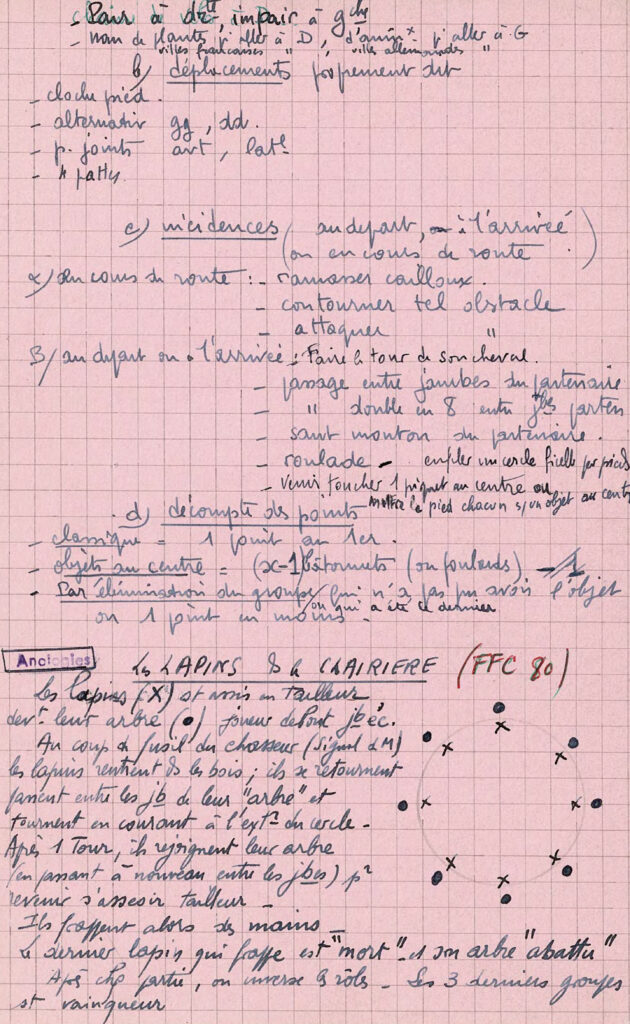 - Pair à dte, impair à gche
- nom de plantes pr aller à D, d'animx pr aller à G
villes françaises " , villes allemandes "
b) déplacements proprement dit
- cloche pied.
- alternatif gg, dd.
- p. joints avt, latl
- 4 pattes
c) incidences (au départ, ou à l'arrivée
(ou en cours de route)
α) en cours de route : - ramasser cailloux.
- contourner tel obstacle
- attaquer "
β/ au départ ou à l'arrivée : Faire le tour de son cheval.
- passage entre jambes du partenaire
- " double en 8 entre jbes parten
- saut mouton du partenaire.
- roulade - enfiler un cercle ficelle par pieds
- venir toucher 1 piquet au centre ou
mettre le pied chacun s/ un objet au centre
d) décompte des points
- classique = 1 point au 1er.
- objets au centre = (x-1) bâtonnets (ou foulards)
- Par élimination du groupe / qui n'a pas pu avoir l'objet
/ou qui a été le dernier
ou 1 point en moins -
Analogies
Les LAPINS ds la CLAIRIERE (FFC 80)
Les Lapins (X) st assis en tailleur
devt leur arbre (•) joueur debout jb éc.
Au coup de fusil du chasseur (signal du M)
les lapins rentrent ds les bois ; ils se retournent
passent entre les jb de leur "arbre" et
tournent en courant à l'extr du cercle -
Après 1 Tour, ils rejoignent leur arbre
(en passant à nouveau entre les jbes) pr
revenir s'asseoir tailleur -
Ils frappent alors des mains -
Le dernier lapin qui frappe est "mort" - et son arbre "abattu"
Après chq partie, on inverse les rôles - Les 3 derniers groupes
st vainqueur